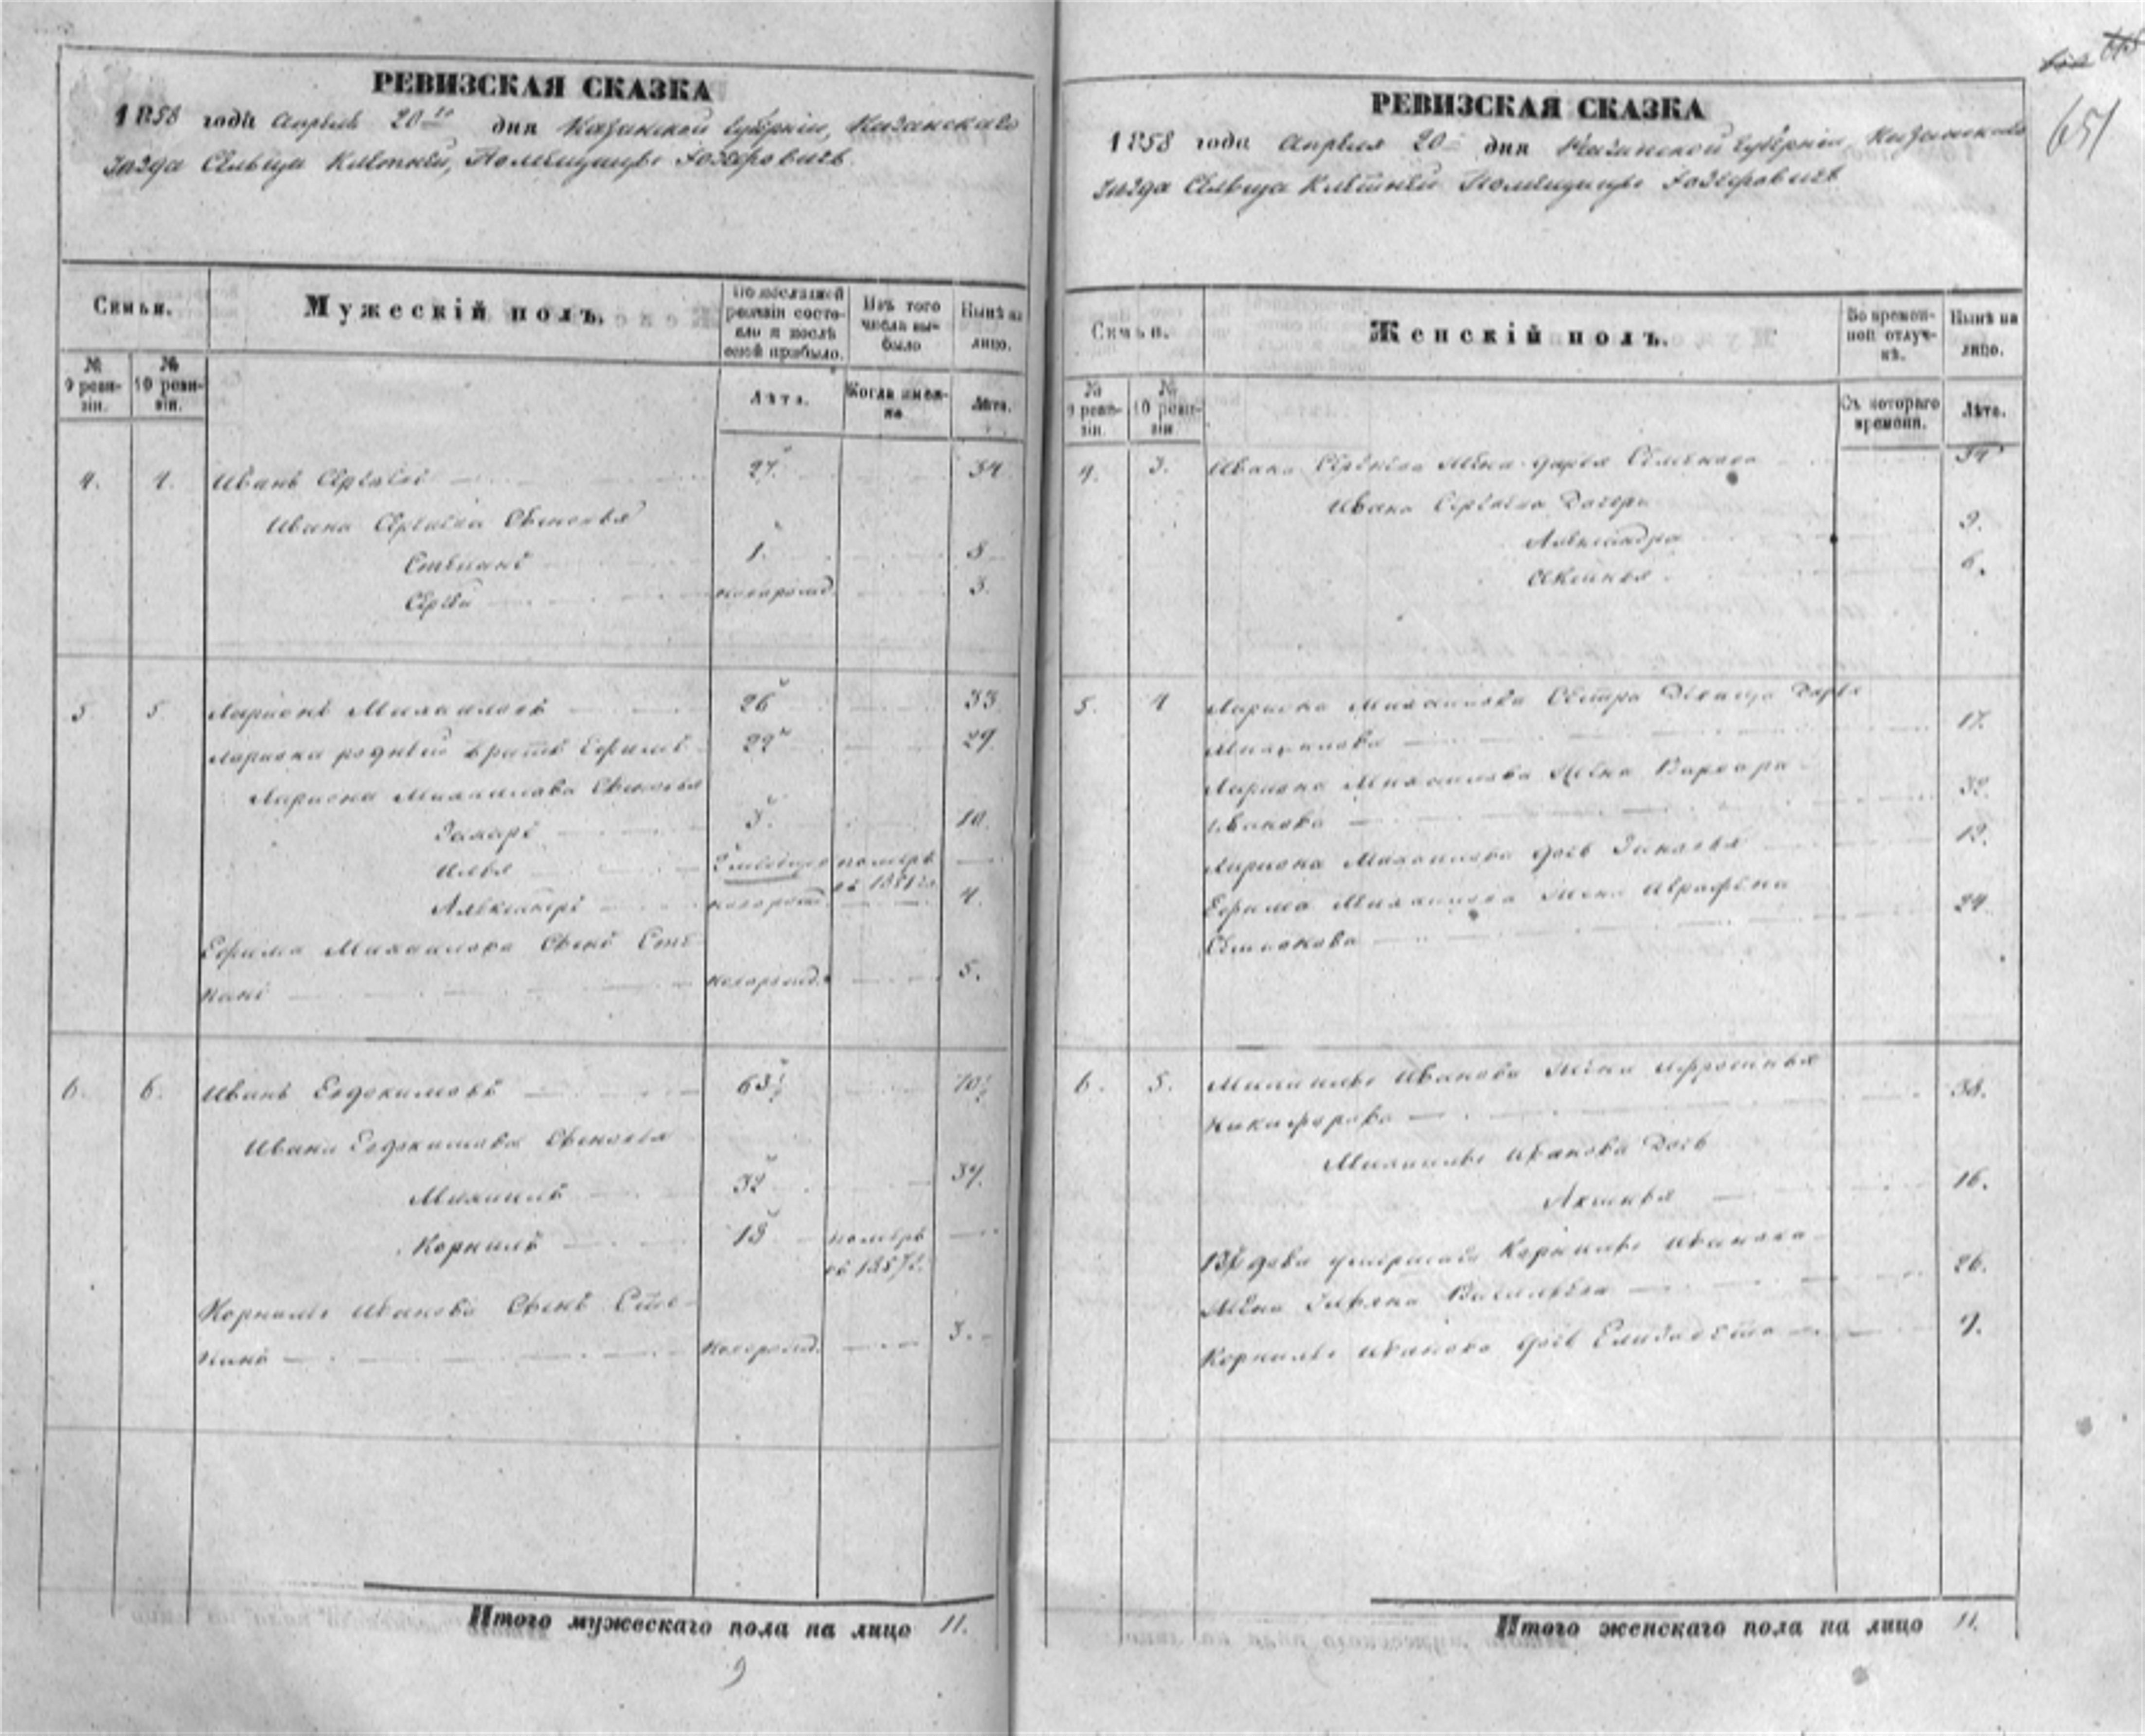 РЕВИЗСКАЯ СКАЗКА
1858 года Апреля 20го дня Казанской Губерніи, Казанскаго
Уѣзда Сельца Клетней, Помещицы
Семьи.
Мужескій полъ.
По последней ревизіи состояло и послѣ оной прибыло.
Изъ того числа выбыло
Нынѣ на лицо.
№ 9 ревизіи.
№ 10 ревизіи.
Лѣта.
Когда именно
Лѣта.
4. 4. Иванъ Сергѣевъ 27. 34
Ивана Сергѣева Сыновья
Степанъ 1. 8
Сергѣй новорожд. 3.
5 5 Ларионъ Михайловъ 26 33
Лариона родный братъ Ефимъ 22 29
Лариона Михайлова Сыновья
Захаръ 3. 10.
Илья
Александръ новорожд. 4.
Ефима Михайлова Сынъ Сте-
панъ новорожд. 5.
6. 6. Иванъ Евдокимовъ 63½ 70½
Ивана Евдокимова Сыновья
Михаилъ 32 39.
Корнилъ 18 померъ
въ 1857г.
Корнилы Иванова Сынъ Сте-
панъ новорожд. 3.
Итого мужескаго пола на лицо 11.
9
РЕВИЗСКАЯ СКАЗКА
1858 года Апреля 20 дня Казанской Губерніи, Казанскаго
Уѣзда Сельца Клетней Помещицы
651
Семьи.
Женскій полъ.
Во временной отлучкѣ.
Нынѣ на лицо.
№ 9 ревизіи.
№ 10 ревизіи
Съ котораго времени.
Лѣта.
4. 3. Ивана Сергѣева Жена Дарья Семенова 34
Ивана Сергѣева Дочери
Александра 9.
Аксинья 6.
5. 4 Лариона Михайлова Сестра Девица Дарья
Михайлова 17.
Лариона Михайлова Жена Варвара
Иванова 32.
Лариона Михайлова дочь Зиновья 12.
Ефима Михайлова Жена Аграфена
24
6. 5. Михаилы Иванова Жена Афросинья
Никифорова 38.
Михаилы Иванова Дочь
Аксинья 16.
Вдова умершаго Корнилы Иванова
Жена Ульяна Васильева 26.
Корнилы Иванова дочь Елизавета 7.
Итого женскаго пола на лицо 11.